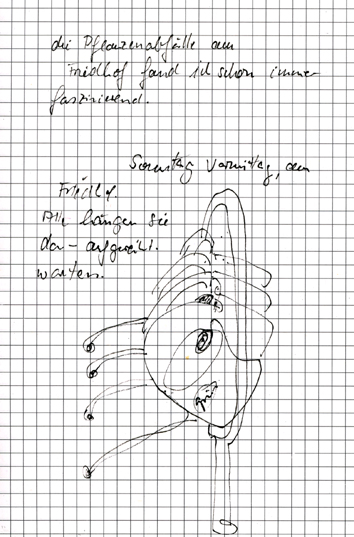 die Pflanzenabfälle am
Friedhof fand ich schon immer
faszinierend.
Sonntag Vormittag, am
Friedhof.
Alle hängen sie
da - aufgereiht.
warten.